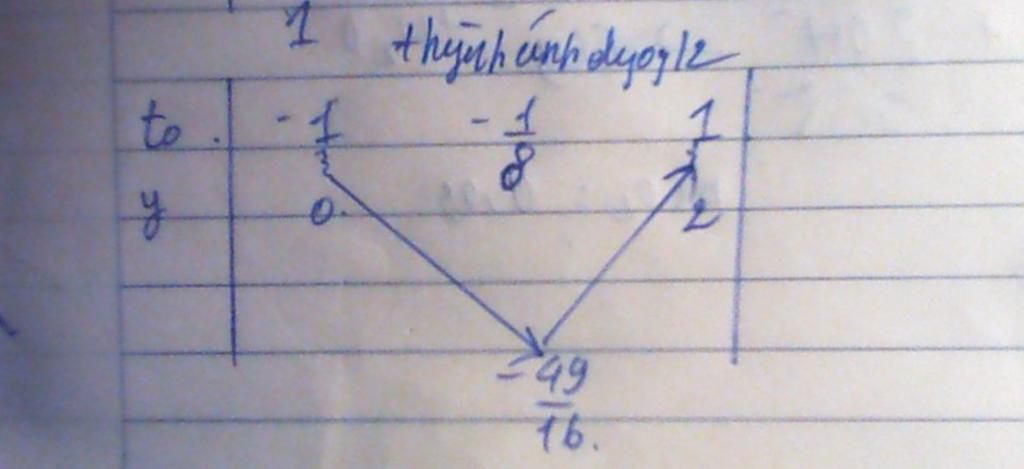 1
thuỳnhánhdyog12
to. -1 -1/8 1
y 0. 2
-49/16.